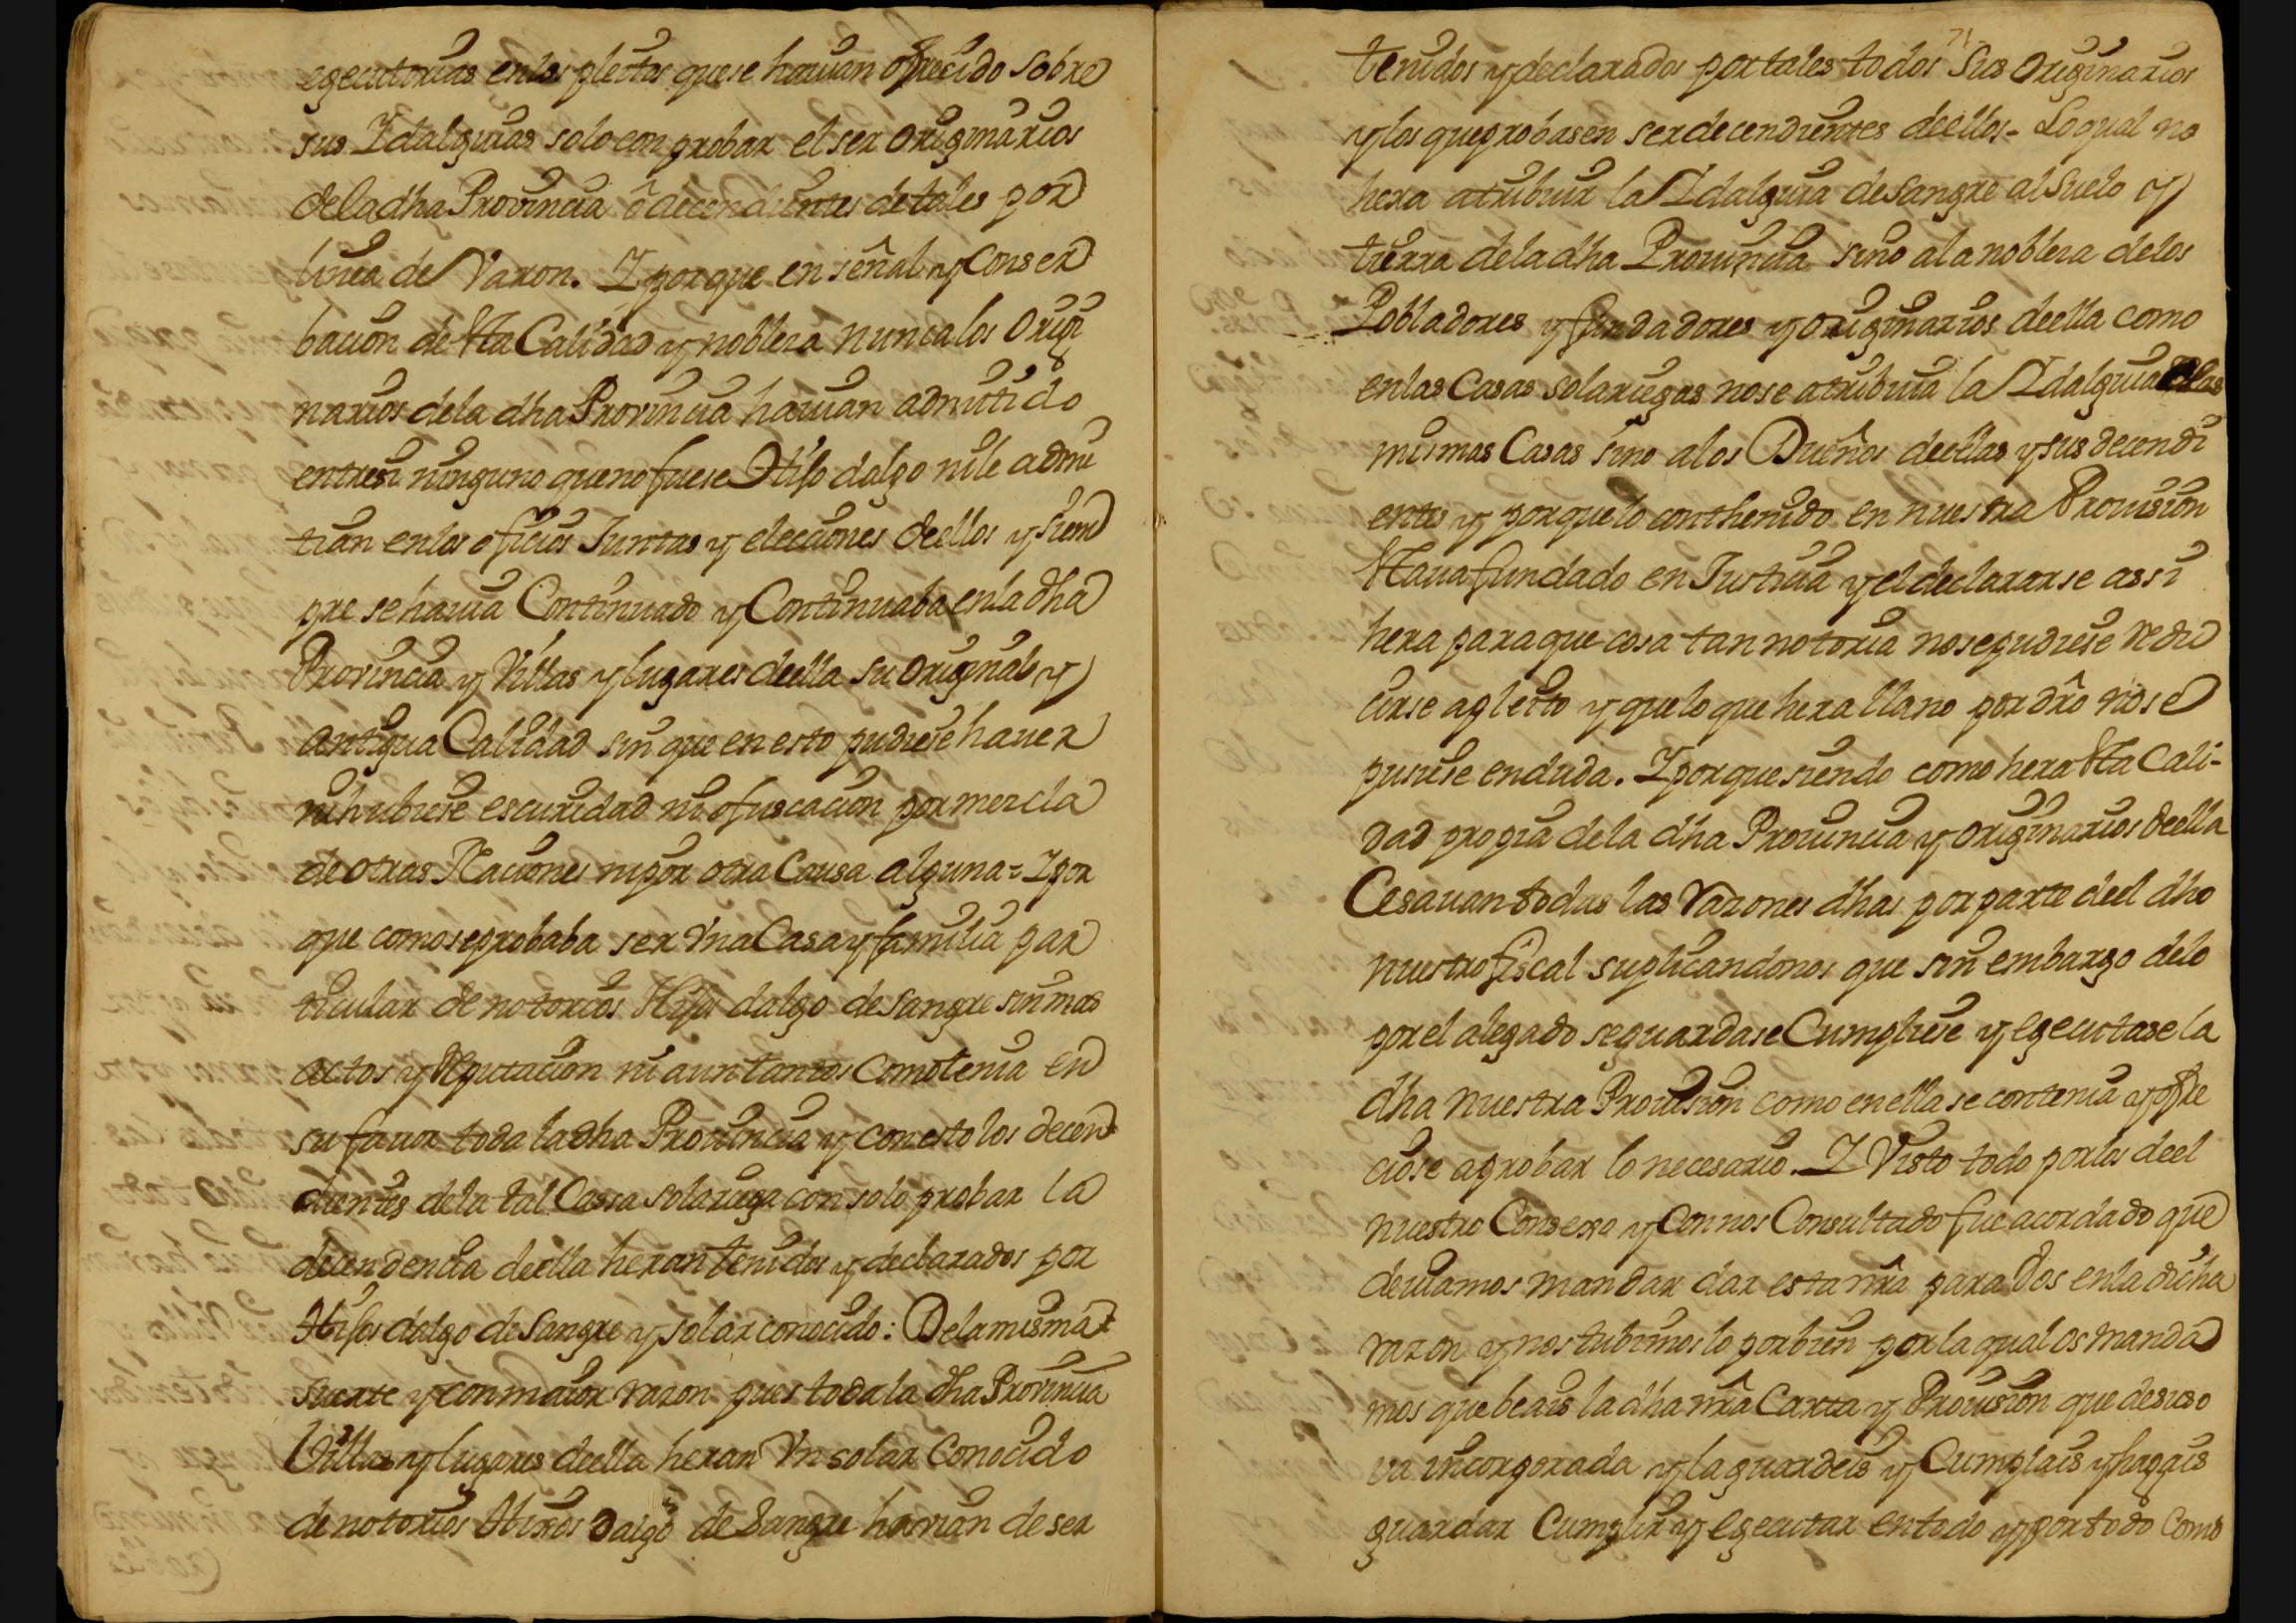 egecutorias enlos pleitos quese hauian ofrecido sobre
sus Idalguias solo con probar el ser originarios
dela dha Provincia ô decendientes de tales por
linea de Varon. I porque en señal y Conser
bacion de Sta Calidad y noblesa nunca los Origi
narios dela dha Provincia hauian admitido
entresi ninguno que no fuese Hijo dalgo nile admi
tian enlos oficios Juntas y elecciones deellos y siem
pre se hauia Continuado y Continuaba enla dha
Provincia y Villas y lugares deella su original y
antigua Calidad sin que en esto pudiese hauer
ni hubiese escuridad ni ofuscacion por mercla
de otras Naciones ni por otra Causa alguna = I por
que como se probaba ser Vna Casa y familia par
ticular de notorios Hijos dalgo de sangre sin mas
actos y Reputacion ni aun tantos como tenia en
su fauor toda la dha Provincia y con esto los decen
dientes dela tal Cassa solariega con solo probar la
decendencia deella heran tenidos y declarados por
Hijos dalgo de Sangre y solar conocido: Dela misma
suerte y con maior razon pues toda la dha Provincia
Villas y lugares deella heran Vn solar Conocido
de notorios Hixos Dalgo de Sangre hauian de ser
71
tenidos y declarados por tales todos sus Originarios
y los que probasen ser decendientes deellos - Lo qual no
hera atribuir la Idalguia de sangre al suelo y
tierra dela dha Prouincia sino ala noblesa delos
Pobladores y fundadores y originarios deella como
enlas Casas solariegas nose atribuia la Idalguia alas
mismas Casas sino alos Dueños deellas y sus decendi
entes y porque lo conthenido en nuestra Prouision
Staua fundado en Justicia y el declararse assi
hera para que cosa tan notoria nose pudiese redu
cirse apleito y que lo que hera llano por dro nose
pusiese enduda. I porque siendo como hera Sta Cali-
dad propia dela dha Prouincia y originarios deella
Cesauan todas las Razones dhas por parte deel dho
nuestro fiscal suplicandonos que sin embargo delo
por el alegado se guardase Cumpliese y egecutase la
dha nuestra Prouision como en ella se contenia y ofre
ciose a probar lo necesario. I Visto todo por los deel
nuestro Consexo y Con nos Consultado fue acordado que
deuiamos mandar dar esta nrâ para Vos enla dicha
razon y nos tubimoslo por bien por la qual os manda
mos que beais la dha nrâ Carta y Prouision que desuso
va incorporada y la guardeis y Cumplais y hagais
guardar Cumplir y egecutar entodo y por todo Como